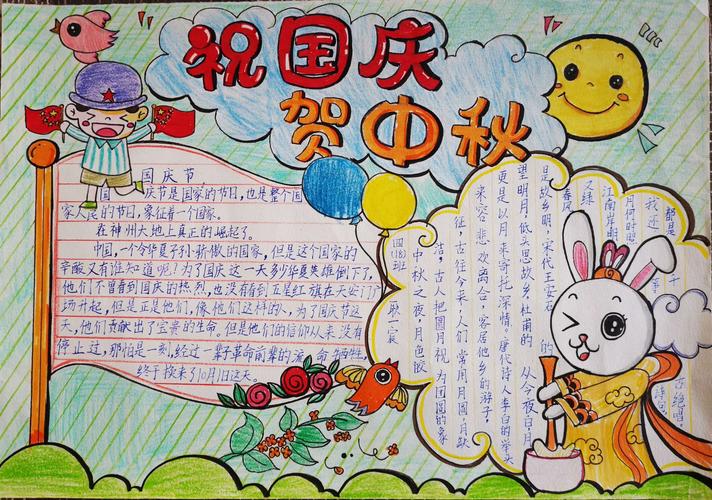 祝国庆
贺中秋
国庆节,
国 庆节是国家的节日,也是整个国
家人民的节日,象征着一个国家。
在神州大地上真正的崛起了。
中国,一个令华夏子孙骄傲的国家,但是这个国家的
辛酸又有谁知道呢?为了国庆这一天多少华夏英雄倒下了。
他们不曾看到国庆的热烈,也没有看到五星红旗在天安门广
场升起,但是正是他们,像他们这样的人,为了国庆节这
天,他们贡献出了宝贵的生命,但是他们的信仰从来没有
停止过,那怕是一刻,经过一辈子革命前辈的流 牺牲
终于换来了10月1日这天。
四(18)班
耿一宸
中秋之夜,月色皎
洁,古人把圆月视为团圆的象
征,古往今来,人们常用月圆,月缺
来容悲欢离合,客居他乡的游子,
更是以月来寄托深情。唐代诗人李白的举头
望明月,低头思故乡,杜甫的
从今夜白,月
是故乡明,宋代王安石的
春风
又绿
江南岸,明
月何时照
我还
都是千
古绝唱
诗句